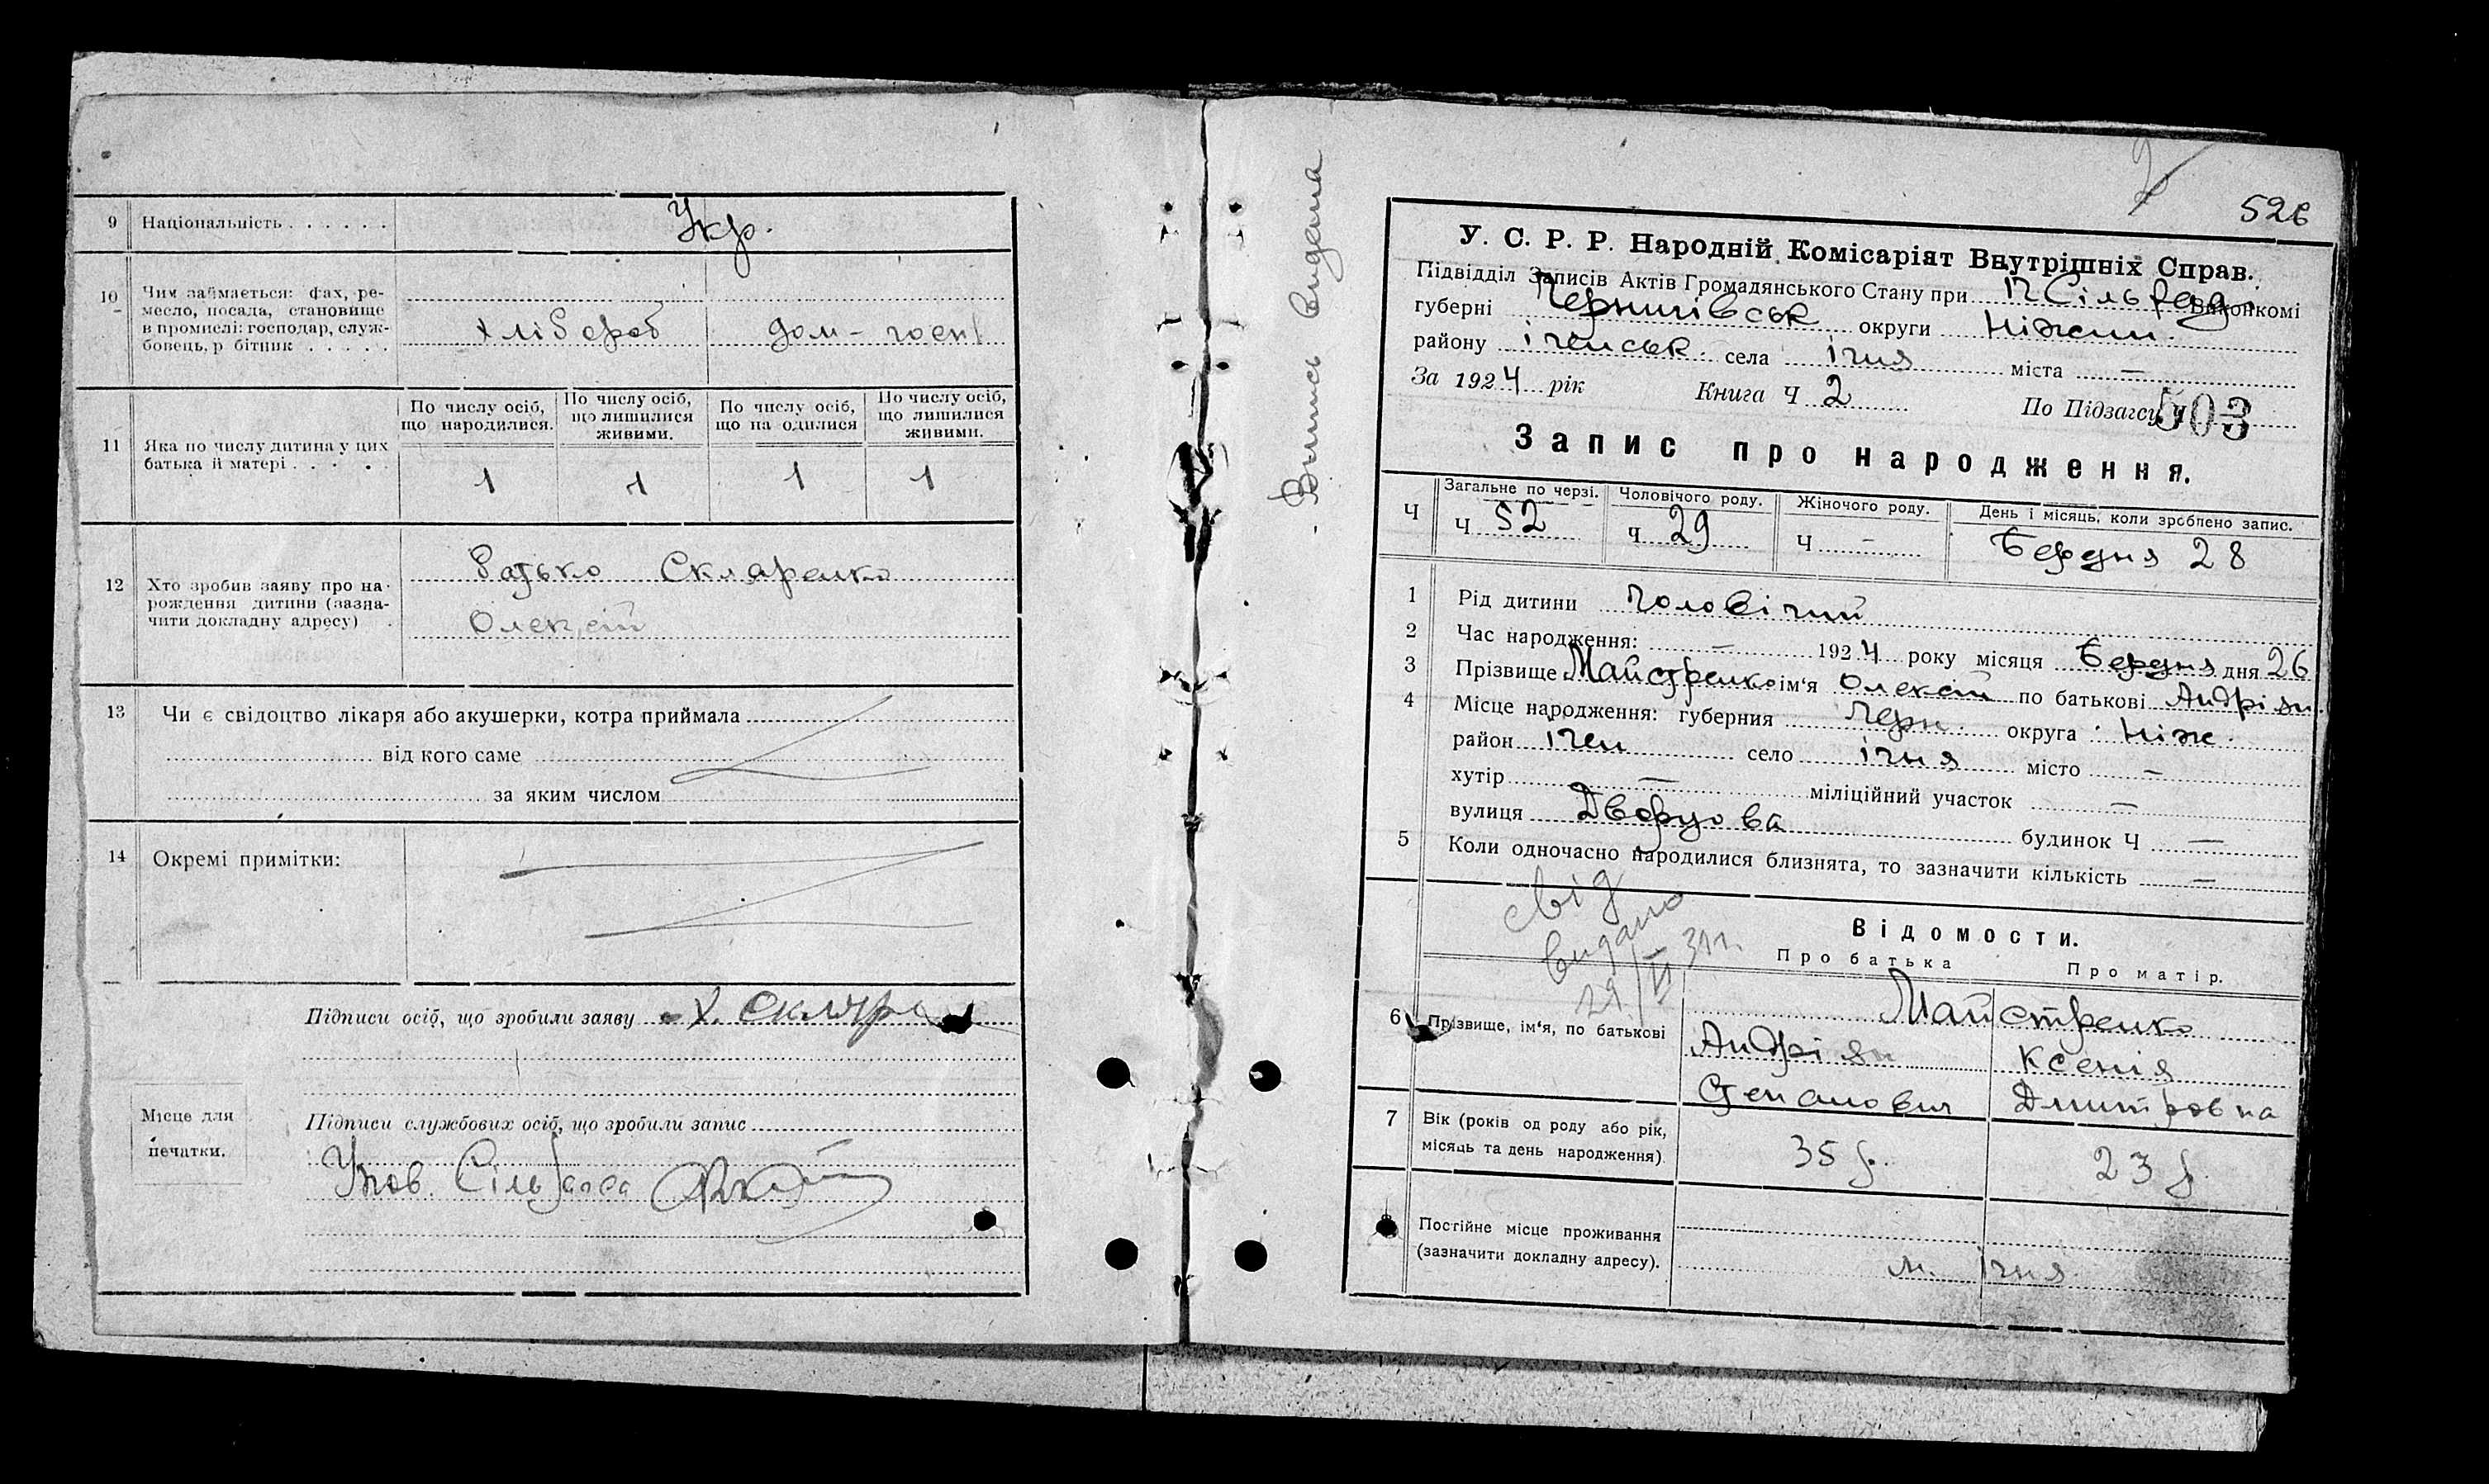 9 Національність . . . . . . Укр.
10 Чим займається: фах, ре-
месло, посада, становище
в промислі: господар, служ-
бовець, р бітник . . . . . хлібороб дом-госп
11 Яка по числу дитина у цих
батька й матері . . . .
По числу осіб, що народилися. По числу осіб, що лишилися живими. По числу осіб, що на одилися По числу осіб, що лишилися живими.
1 1 1 1
12 Хто зробив заяву про на-
рождення дитини (зазна-
чити докладну адресу)
Батько Скляренко
Олексій
13 Чи є свідоцтво лікаря або акушерки, котра приймала
від кого саме
за яким числом
14 Окремі примітки:
Підписи осіб, що зробили заяву Х. Скляре
Місце для
печатки.
Підписи службових осіб, що зробили запис
Упов. Сільзагса
Випись видана
526
У. С. Р. Р. Народній Комісаріят Внутрішніх Справ.
Підвідділ Записів Актів Громадянського Стану при Сільрад Виконкомі
губерні Чернигівськ округи Ніжин.
району Іченськ. села Ічня міста —
За 1924 рік Книга Ч 2 По Підзагсу Ч 503
Запис про народження.
Ч Загальне по черзі. Чоловічого роду. Жіночого роду. День і місяць, коли зроблено запис.
Ч 52 Ч 29 Ч - Березня 28
1 Рід дитини чоловічий
2 Час народження: — 1924 року місяця Березня дня 26
3 Прізвище Майстренко ім'я Олексій по батькові Андріян.
4 Місце народження: губерния Черн. округа Ніж.
район Ічен село Ічня місто —
хутір — міліційний участок —
вулиця Дворцова будинок Ч —
5 Коли одночасно народилися близнята, то зазначити кількість —
свід
видано
29/VI 31 г.
Відомости.
Про батька Про матір.
6 Прізвище, ім'я, по батькові
Майстренко
Андріян Ксенія
Степанович Дмитровна
7 Вік (років од роду або рік,
місяць та день народження)
35 р. 23 р
Постійне місце проживання
(зазначити докладну адресу).
м. Ічня